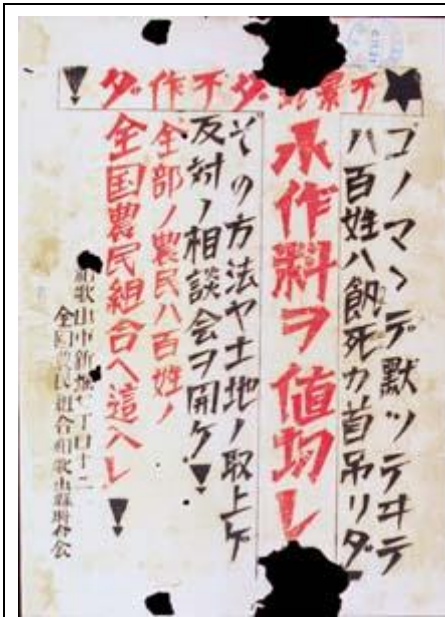 ★不景ダ不作ダ!
コノマヽデ默ツテヰテ
ハ百姓ハ飢死カ首吊リダ
小作料ヲ値切レ
その方法ヤ土地ノ取上ゲ
反対ノ相談会ヲ開ケ!
全部ノ農民ハ百姓ノ
全国農民組合へ這入レ!
和歌山市新堀丁目十二
全国農民組合和歌山縣聯合会